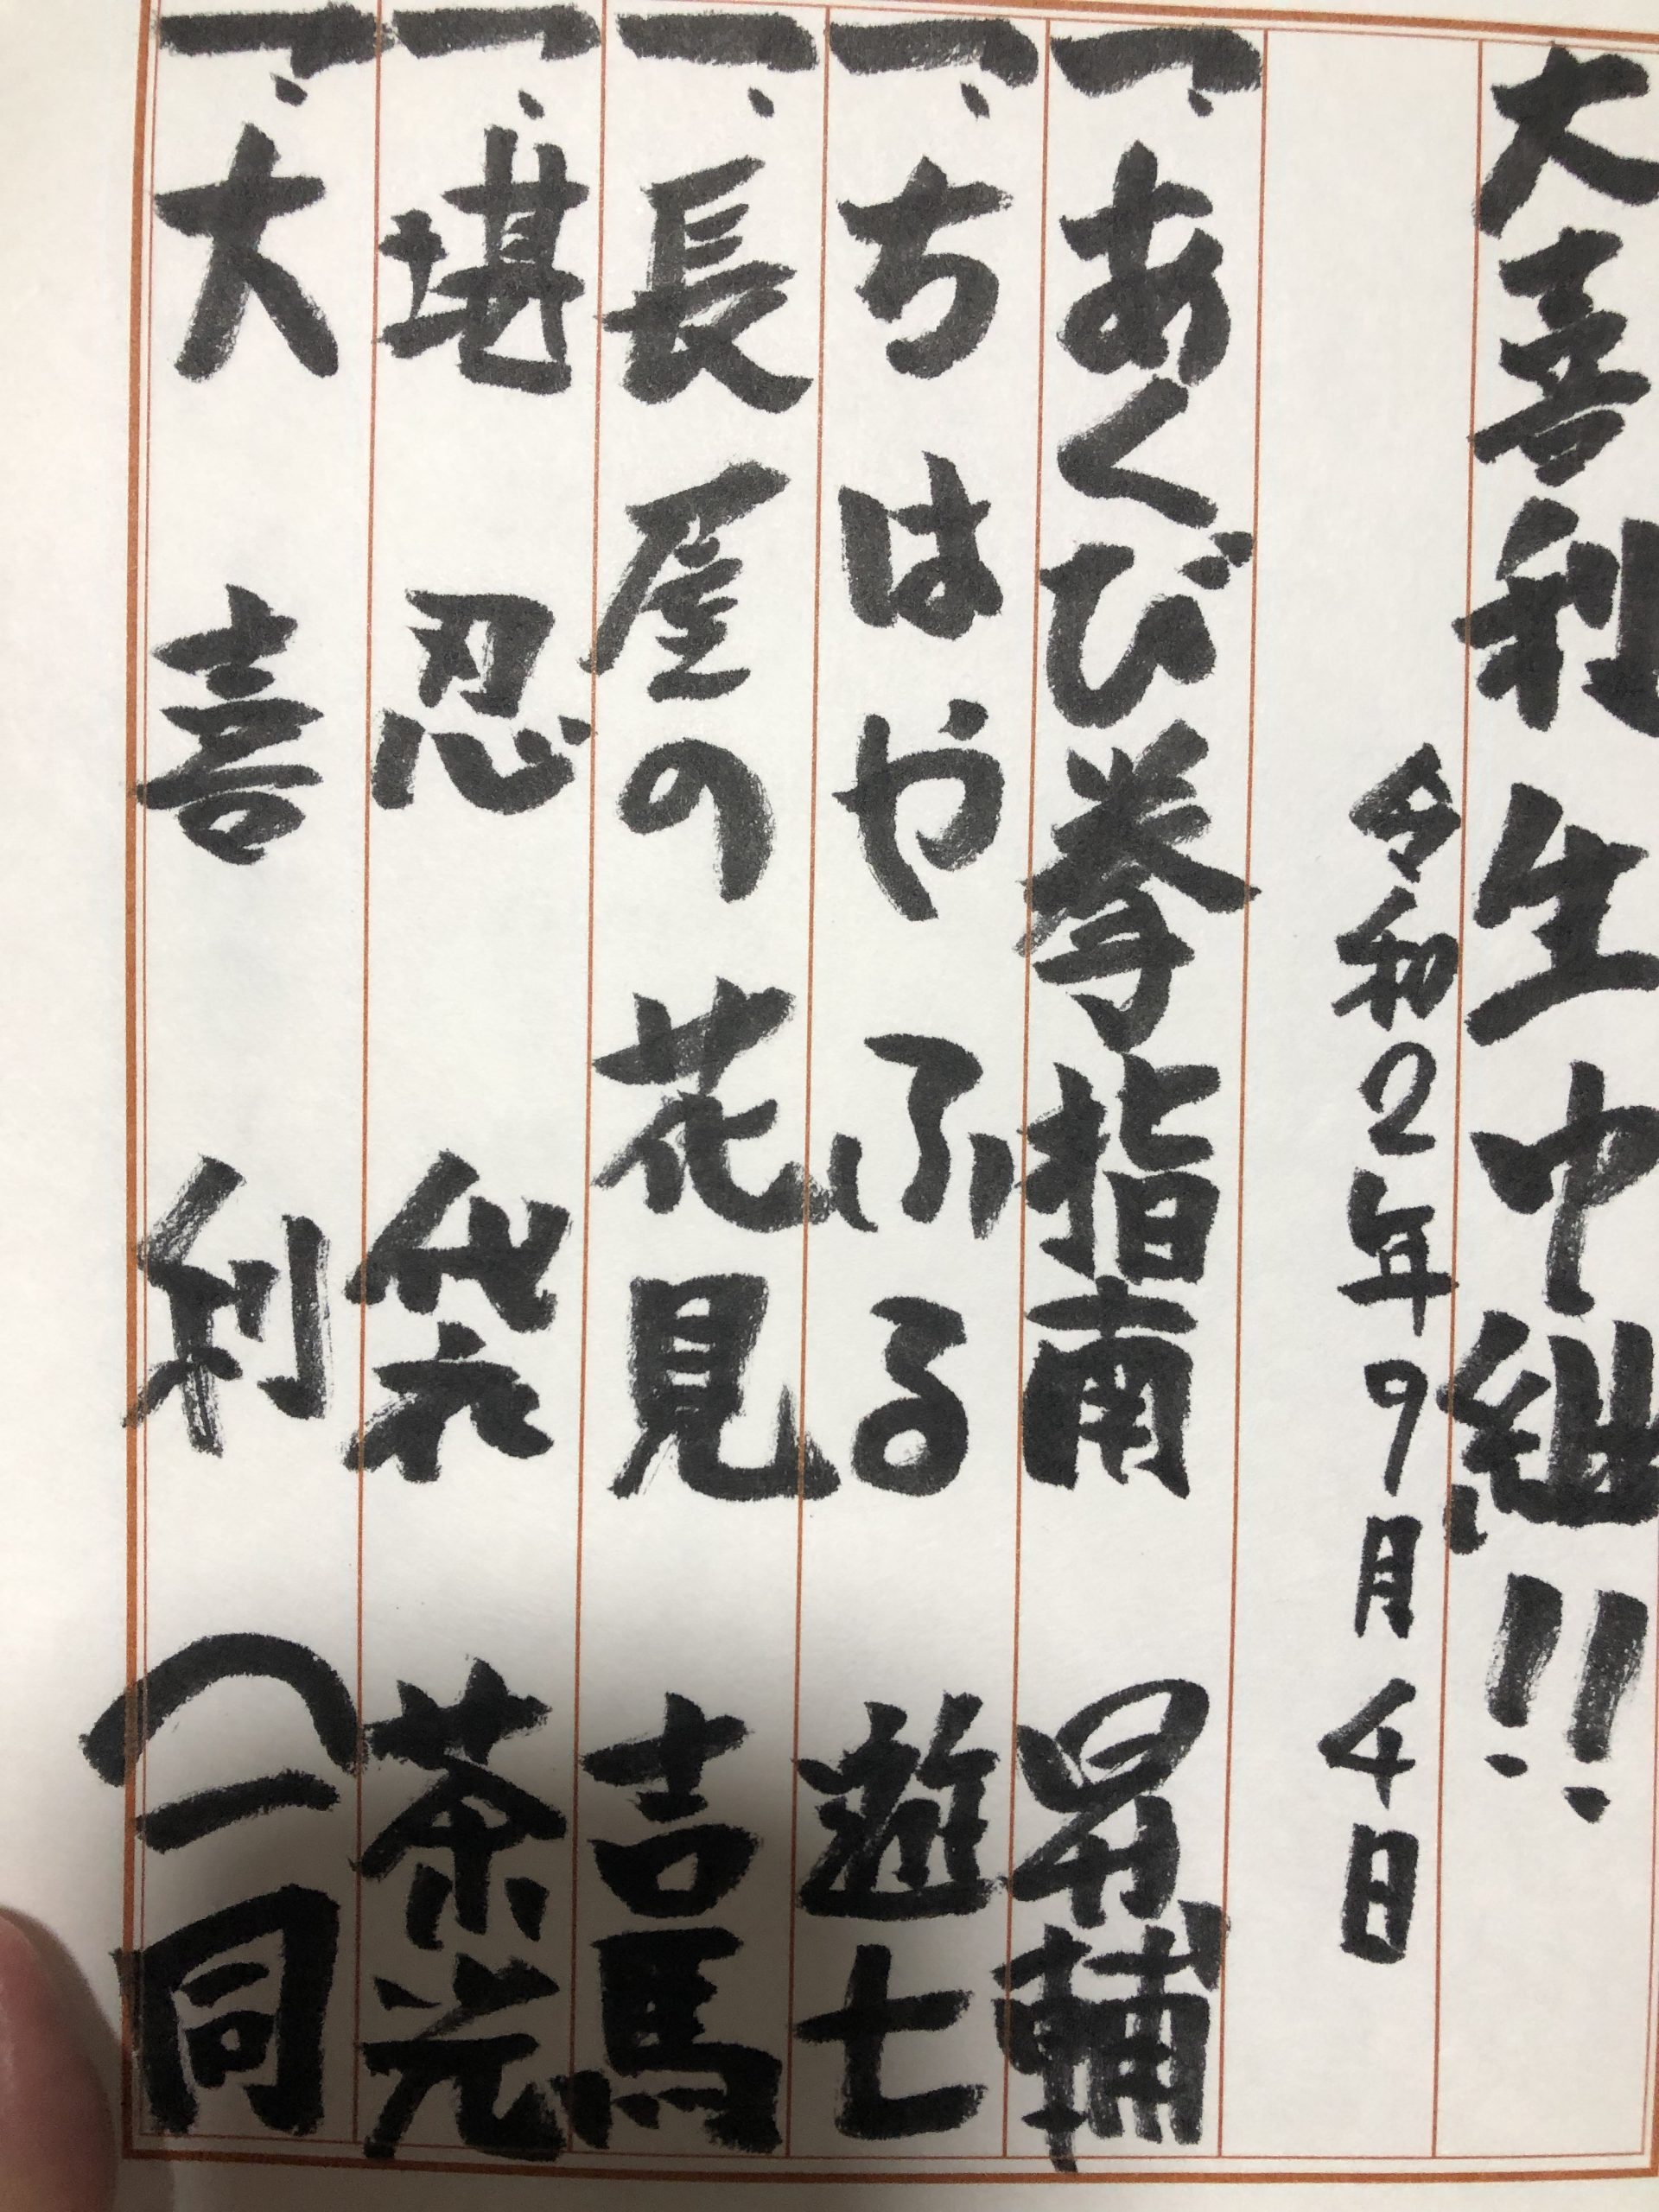 大喜利生中継!!
令和2年9月4日
一、あくび拳指南 昇輔
一、ちはやふる 遊七
一、長屋の花見 吉馬
一、堪忍袋 茶光
一、大喜利 一同